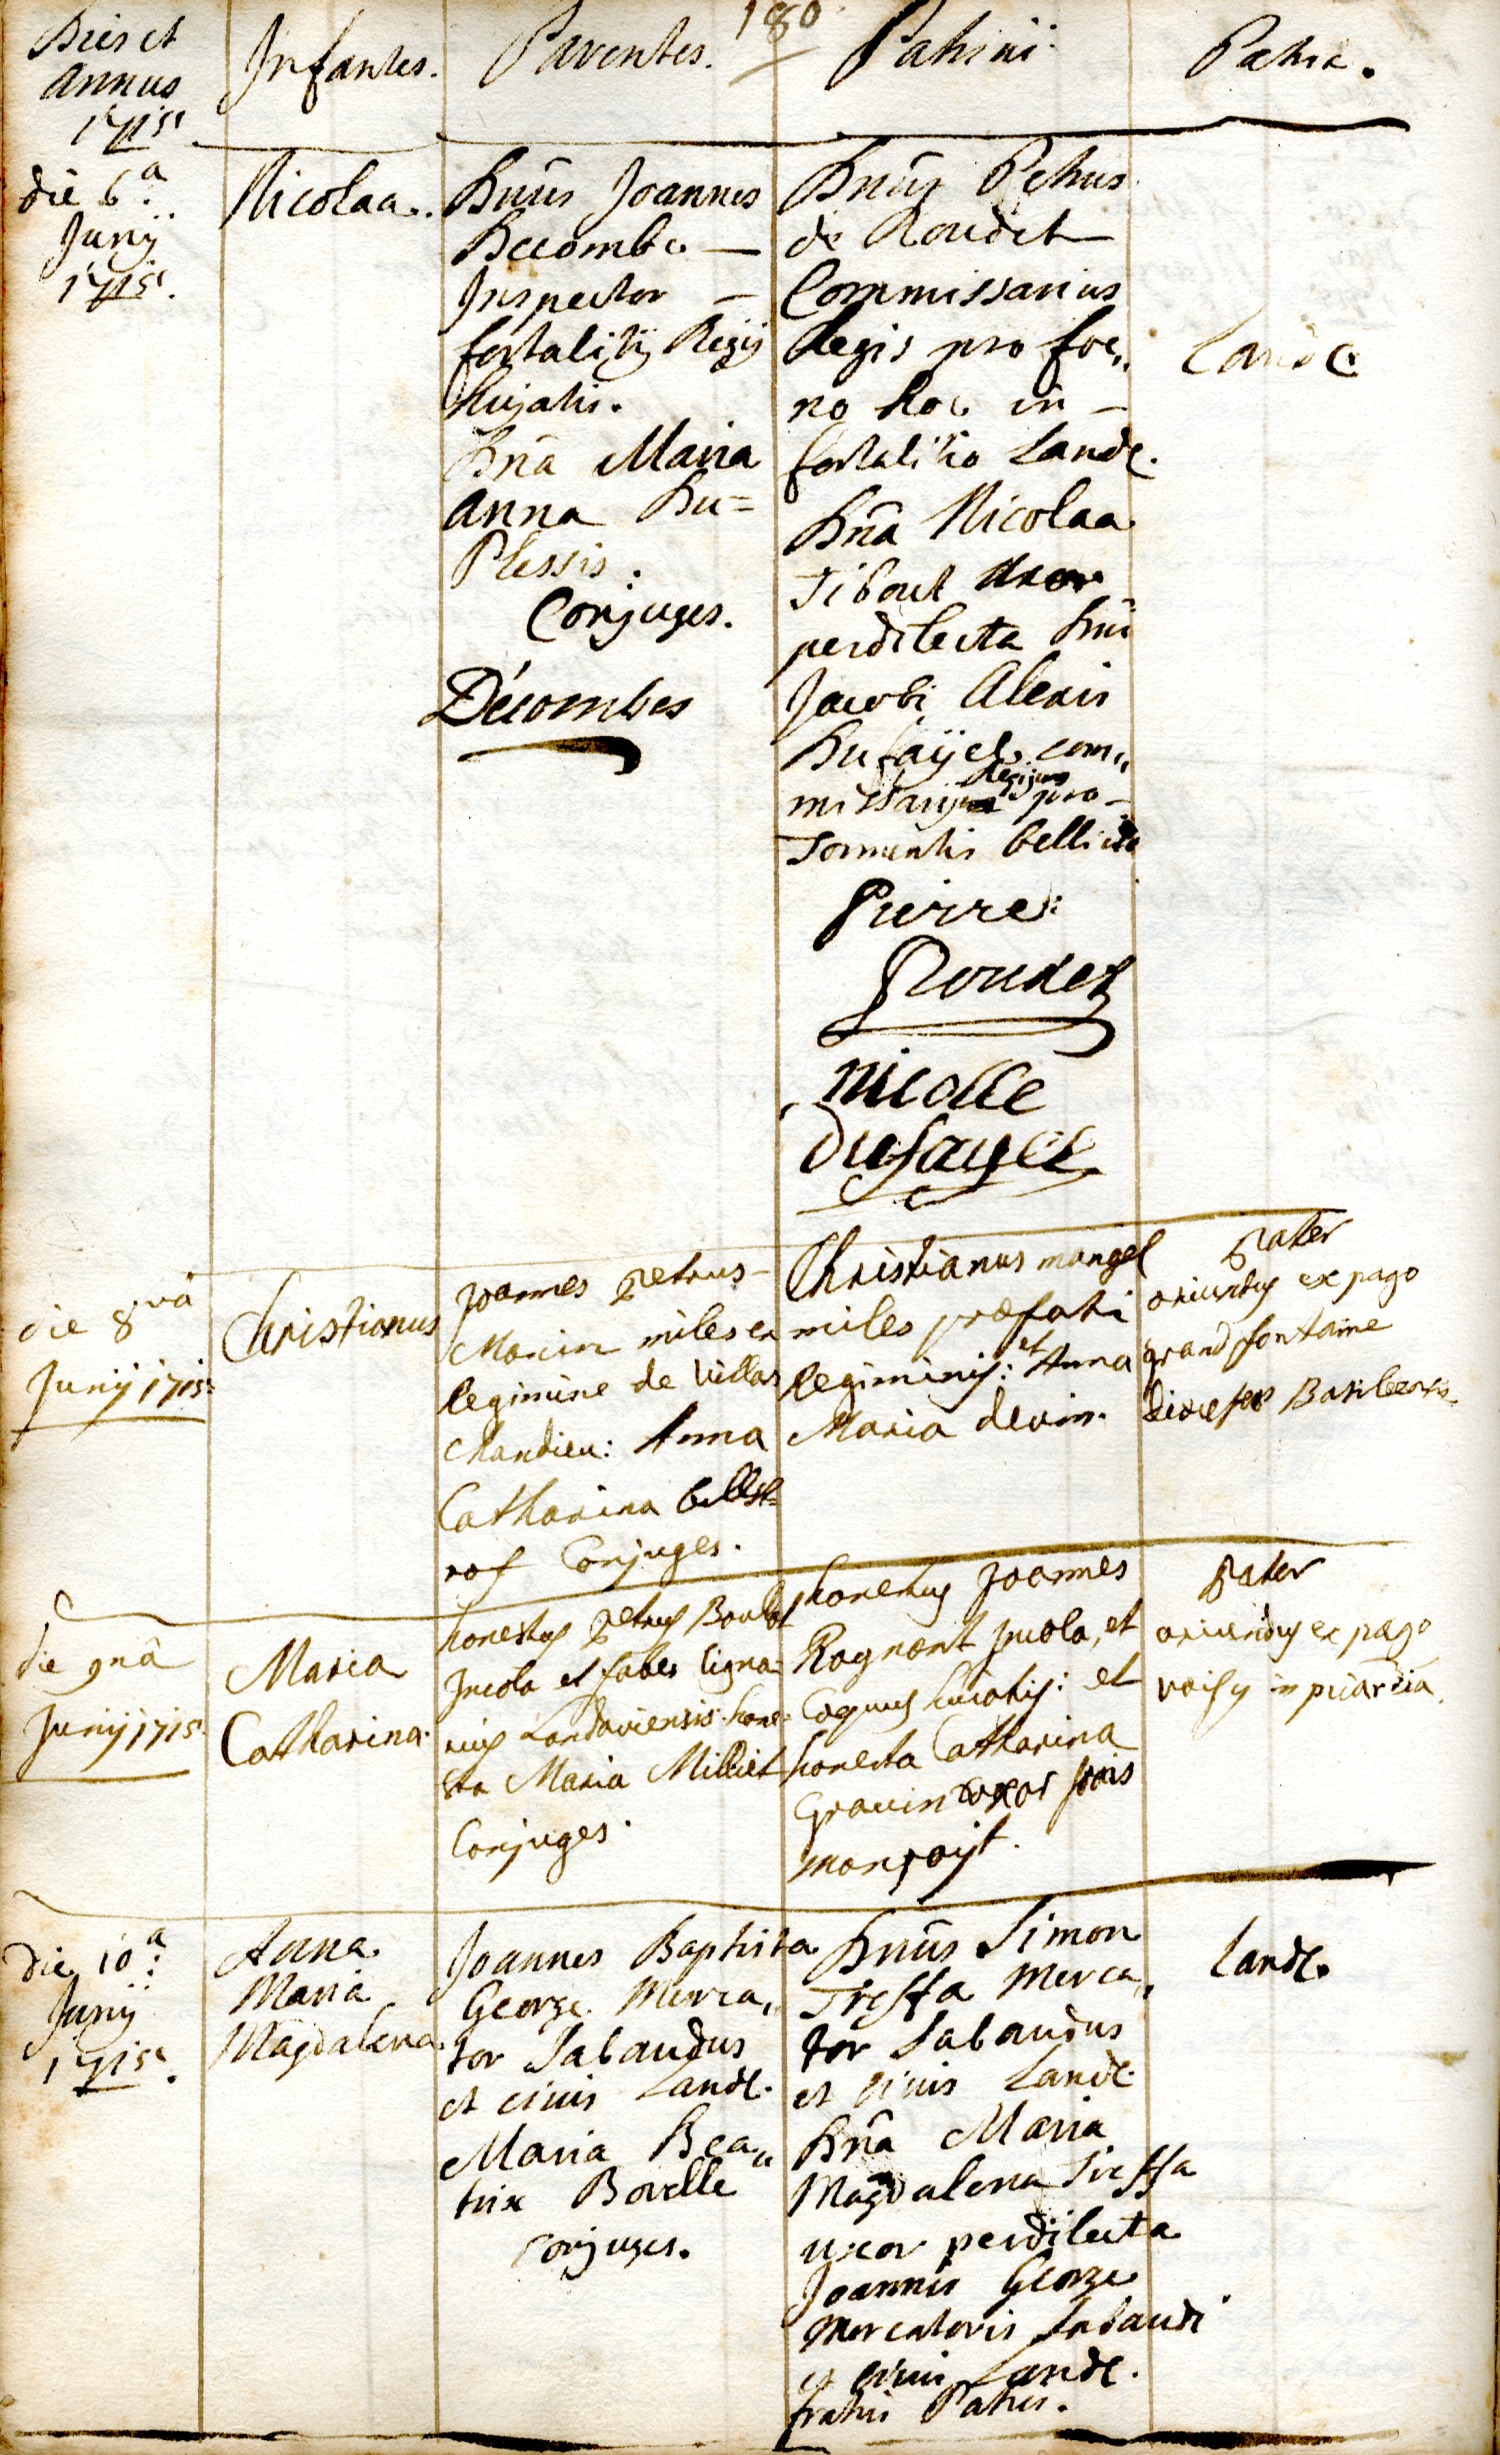 180
Dies et
Annus
1715
Infantes.
Parentes.
Patrini.
Patria.
die 6a
Junij
1715.
Nicolaa.
Dnus Joannes
Decombe —
Inspector —
fortalitij Regij
hujatis.
Dna Maria
Anna Du=
Plessis.
Conjuges.
Décombes
Dnus Petrus
de Roudet
Commissarius
Regis pro foe„
no hoc in —
fortalitio Landc.
Dna Nicolaa
Tibout uxor
perdilecta Dni
Jacobi Alexis
Dufaÿel com„
Regijus
missarij pro —
Tormentis bellicis
Pierre:
Roudet
Nicolle
Dufayel
Landc.
die 8va
Junij 1715.
Christianus
Joannes petrus —
Morin miles ex
legimine de Villars
chandieu: Anna
Catharina
Conjuges.
Christianus mangel
miles praefati
legiminis: et Anna
Maria devin.
pater
oriundus ex pago
grandfontaine
dioeses Basileensis.
die 9nâ
Junij 1715.
Maria
Catharina.
honestus petrus Boulot
Incola et faber ligna=
rius Landaviensis. hone=
sta Maria Milliet
Conjuges.
honestus Joannes
Ragnont Incola, et
Coquus hujatis: et
honesta Catharina
Gravin uxor
pater
oriundus ex pago
voisy in picardia.
Die 10a
Junij
1715.
Anna
Maria
Magdalena.
Joannes Baptista
George Merca„
tor Sabaudus
et civis Landc.
Maria Bea„
trix Borelle
conjuges.
Dnus Simon
Treffa Merca„
tor Sabaudus
et civis Landc.
Dna Maria
Magdalena Treffa
uxor perdilecta
Joannis George
Mercatoris Sabaudi
et civis Landc.
fratris Patris.
Landc.